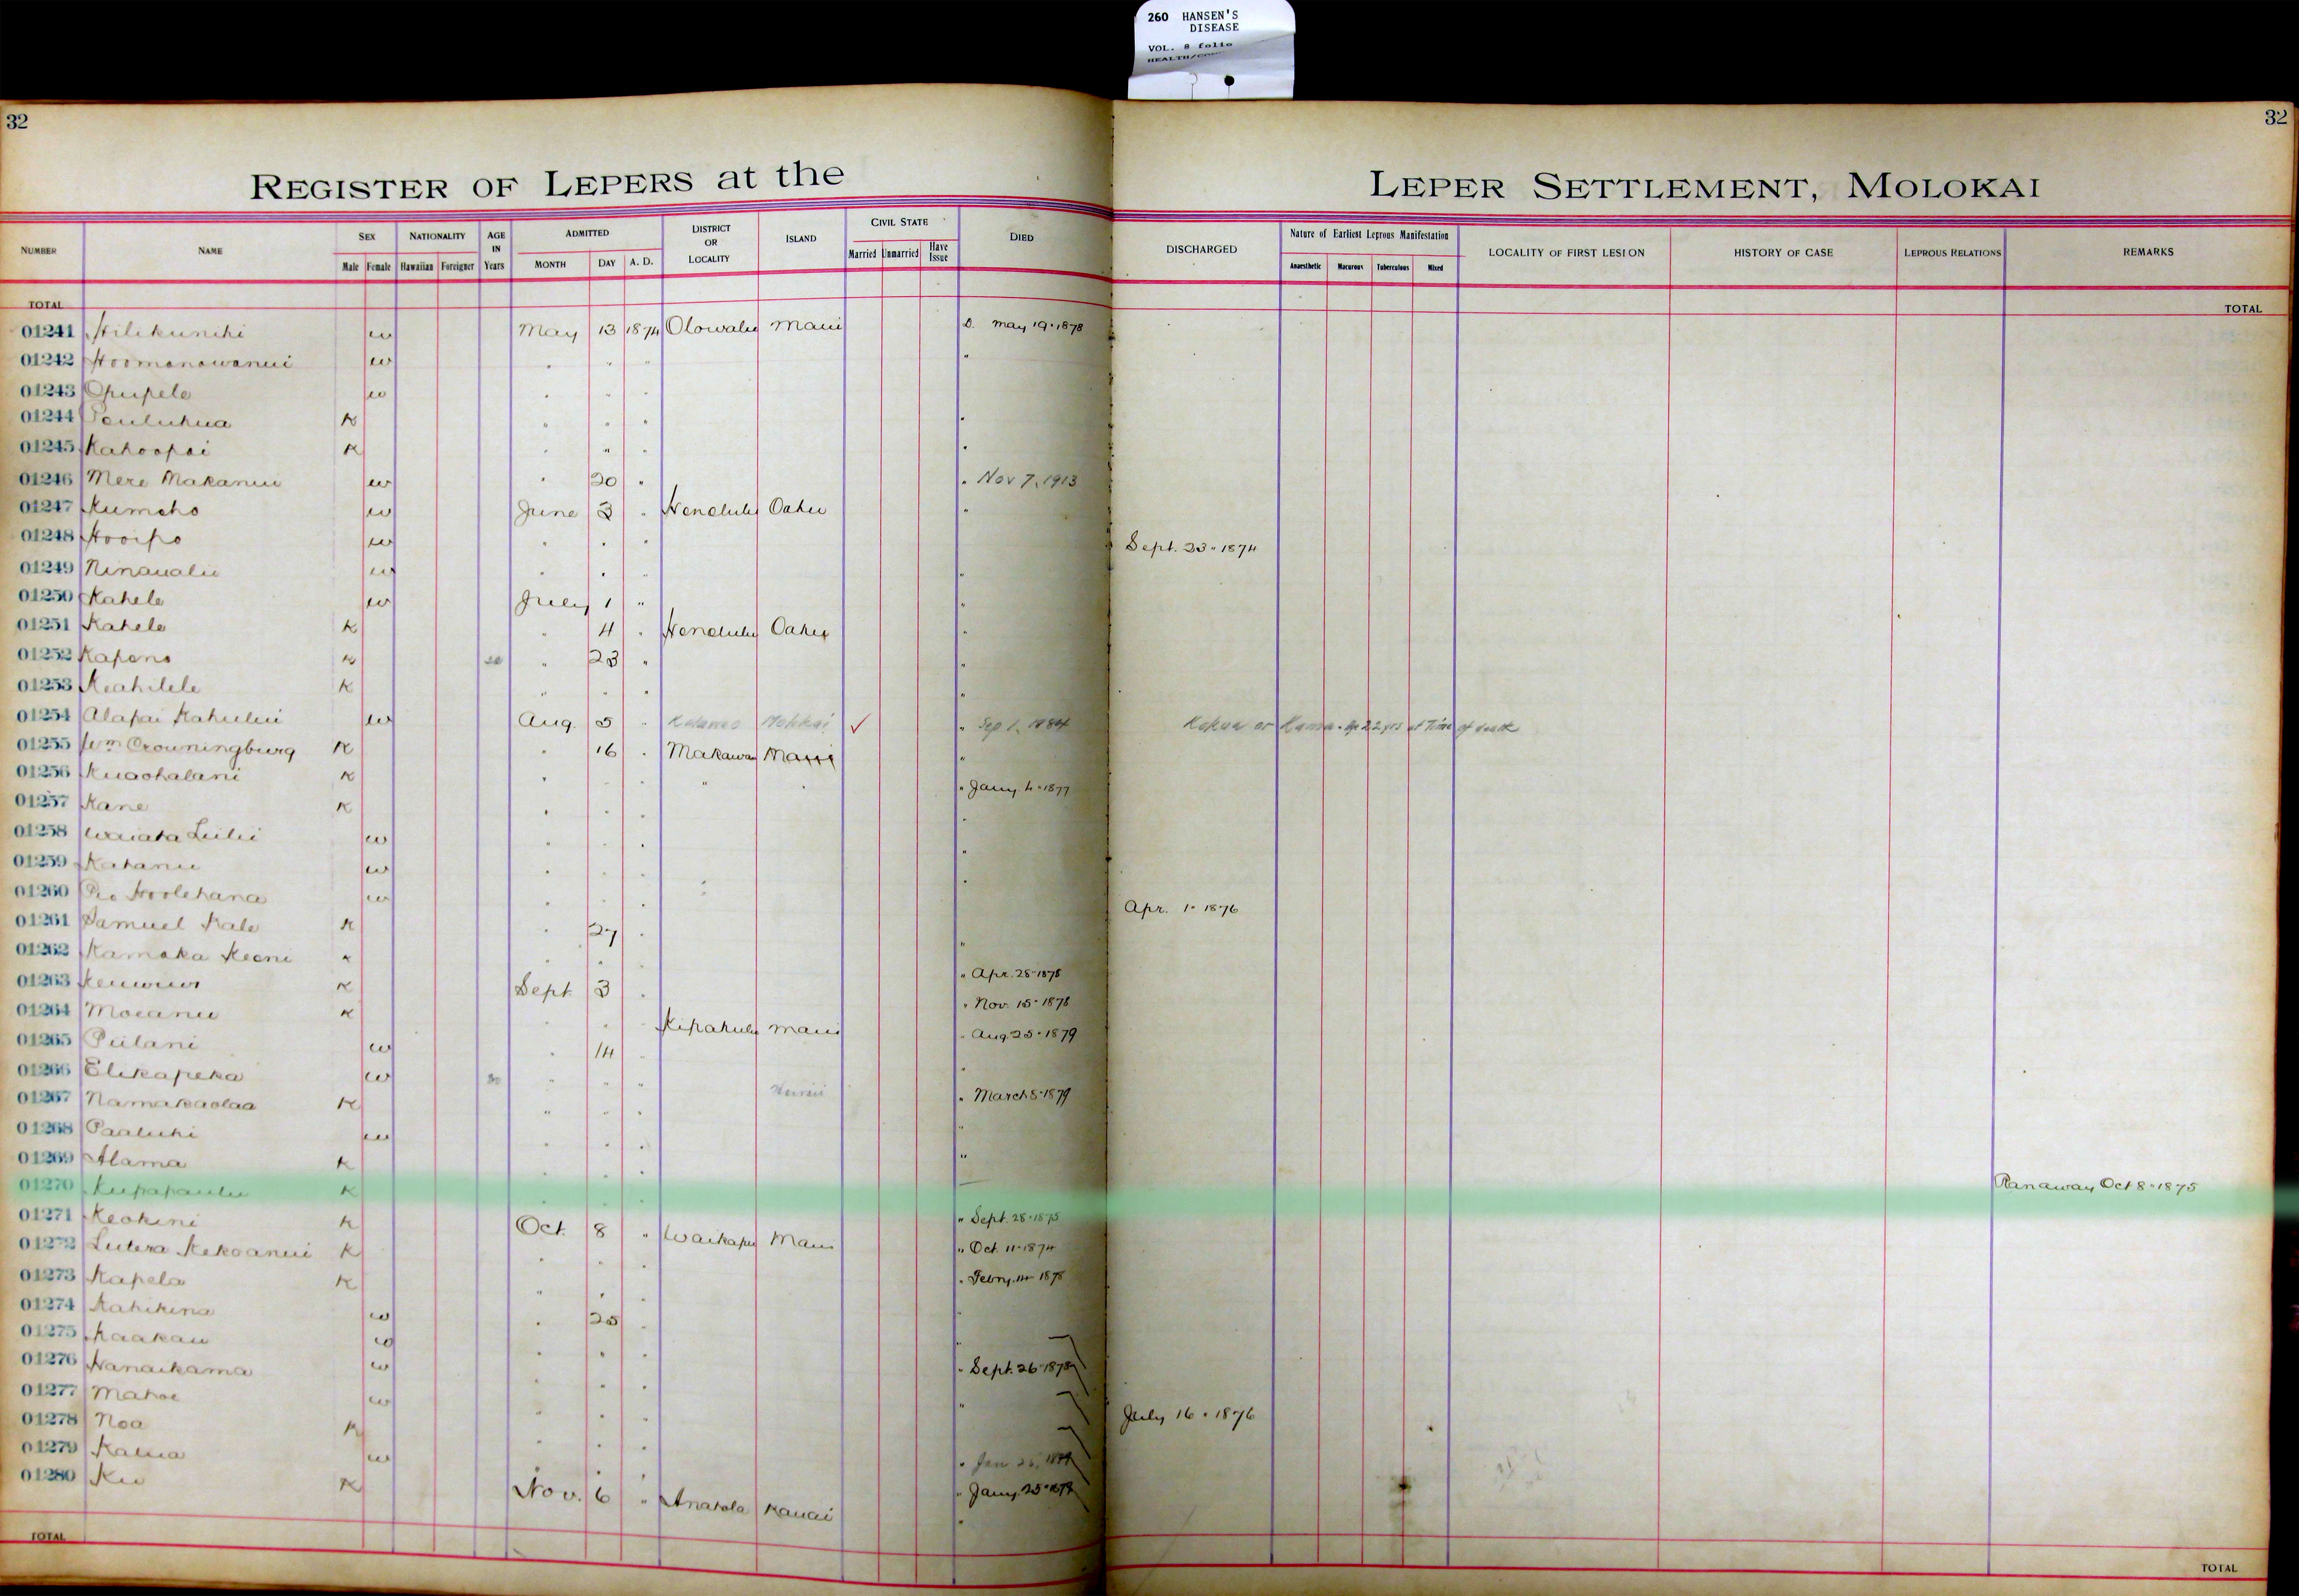 260 HANSEN'S
DISEASE
VOL. 8 folio
32
32
REGISTER OF LEPERS at the LEPER SETTLEMENT, MOLOKAI
NUMBER NAME SEX Male Female NATIONALITY Hawaiian Foreigner AGE IN Years ADMITTED MONTH DAY A. D. DISTRICT OR LOCALITY ISLAND CIVIL STATE Married Unmarried Have Issue DIED DISCHARGED Nature of Earliest Leprous Manifestation Anaesthetic Macurous Tuberculous Mixed LOCALITY OF FIRST LESION HISTORY OF CASE LEPROUS RELATIONS REMARKS
TOTAL TOTAL
01241 Hilikunihi w May 13 1874 Olowalu Maui D. May 19 1878
01242 Hoomanawanui w " " " "
01243 Opupele w " " "
01244 Pauluhua K " " " "
01245 Kahoopai K " " " "
01246 Mere Makanui w " 20 " " Nov 7, 1913
01247 Kumeho w June 3 " Honolulu Oahu "
01248 Hooipo w " " " Sept. 23 1874
01249 Ninaualu w " " " "
01250 Kahele w July 1 " "
01251 Kahele K " 4 " Honolulu Oahu "
01252 Kapena K " 23 " "
01253 Keahilele K " " " "
01254 Alapai Kahului w Aug. 5 " Kalawao Molokai ✓ " Sep 1, 1884 Kokua or Kamaa. Age 22 yrs at Time of death
01255 Wm Crowningburg K " 16 " Makawao Maui "
01256 Kuaohalani K " " " " " " Jany 4 1877
01257 Kane K " " " "
01258 Waiaka Luilii w " " " "
01259 Kahanu w " " " "
01260 Hoolehana w " " " Apr. 1 1876
01261 Samuel Kale K " 27 " "
01262 Kamaka Keoni K " " " " Apr. 28 1878
01263 K Sept. 3 " " Nov. 15 1878
01264 Moeanu K " " " Kipahulu Maui " Aug 25 1879
01265 Piilani w " 14 " "
01266 Elikapeka w " " " Hawaii " March 8 1879
01267 Namakaolaa K " " " "
01268 Paaluhi w " " " "
01269 Alama K " " "
01270 Kupapaulu K " " Ranaway Oct 8 1875
01271 Keohini K Oct. 8 " Waikapu Maui " Sept. 28 1875
01272 Lutera Kekoanui K " " " " Oct. 11 1874
01273 Kapela K " " " " Febry. 14 1878
01274 Kahikina w " 25 " "
01275 Kaakau w " " " "
01276 Nanaikama w " " " " Sept. 26 1878
01277 Mahoe w " " " "
01278 Noa K " " " July 16 1876
01279 Kalua w " " " Jan
01280 Ku K Nov. 6 " Anahola Kauai " Jany. 25
TOTAL TOTAL